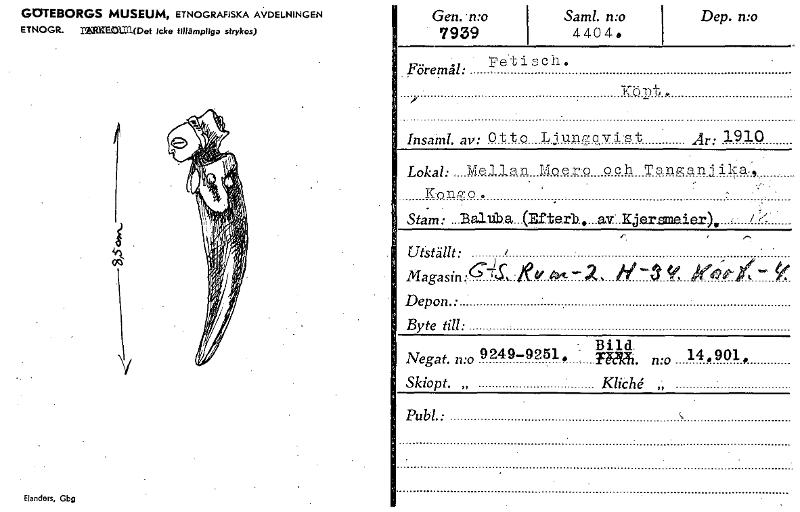 GÖTEBORGS MUSEUM, ETNOGRAFISKA AVDELNINGEN
ETNOGR. (Det icke tillämpliga strykes)
8,5 cm
Elanders, Gbg
Gen. n:o Saml. n:o Dep. n:o
7939 4404.
Föremål: Fetisch.
Köpt.
Insaml. av: Otto Ljungqvist År: 1910
Lokal: Mellan Moero och Tanganjika,
Kongo.
Stam: Baluba (Efterb. av Kjersmeier).
Utställt:
Magasin: G+S. Rum-2. H-34. -4.
Depon.:
Byte till:
Negat. n:o 9249-9251. Bild n:o 14.901.
Skiopt. „ Kliché „
Publ.: